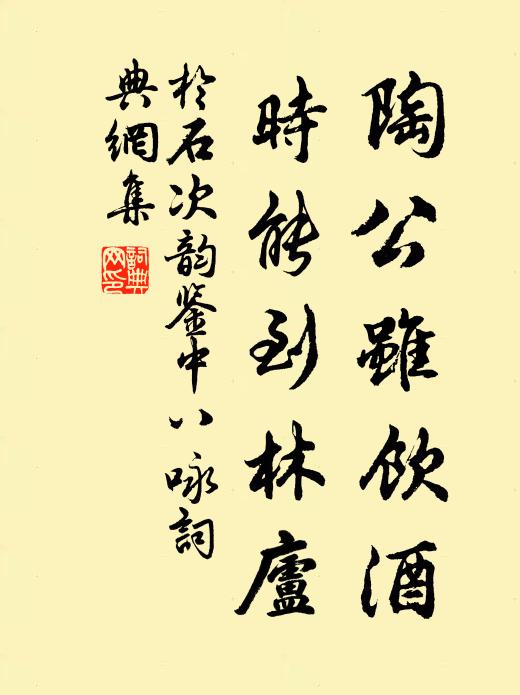 陶公雖飲酒
時能到林廬
於石次韵鉴中八咏詞
典網集
詞典
网印